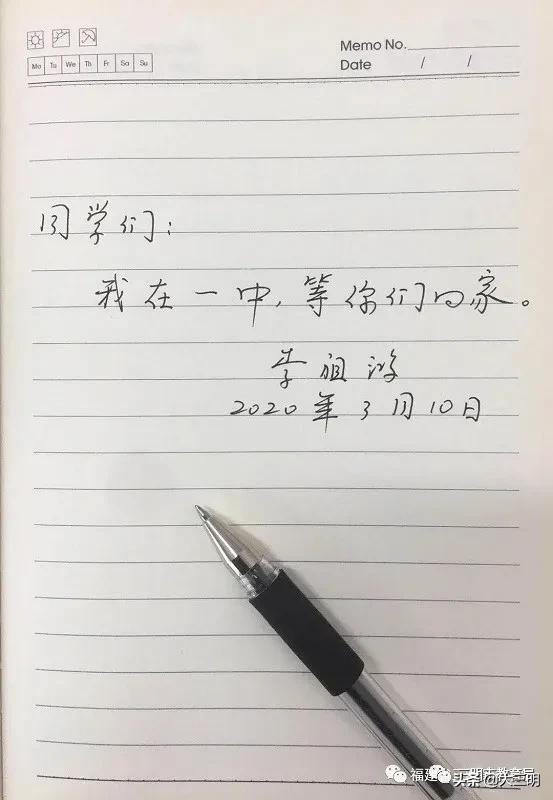 Memo No.
Mo Tu We Th Fr Sa Su
Date / /
同学们:
我在一中,等你们回家。
李祖游
2020年3月10日
头条@大三明